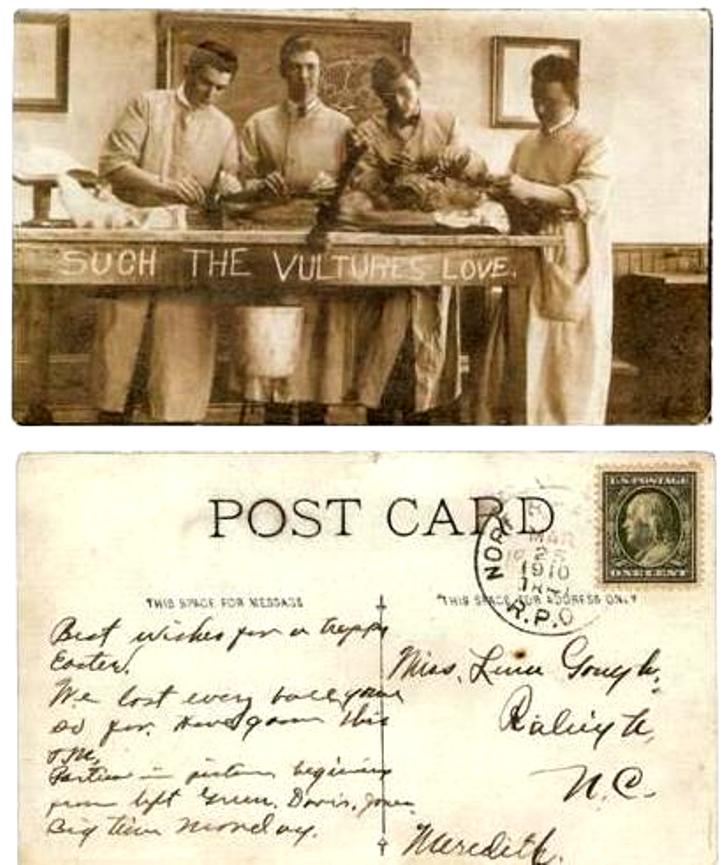 SUCH THE VULTURES LOVE.
POST CARD
U.S. POSTAGE
ONE CENT
NORF
MAR
25
1910
R.P.O
THIS SPACE FOR MESSAGE
THIS SPACE FOR ADDRESS ONLY
Best wishes for a happy
Easter.
We lost every ball game
so far. Have game this
P.M.
Parties in picture beginning
from left Green, Davis, Jones
Big time Monday.
Miss. Lina Gough,
Raleigh,
N.C.
Meredith.